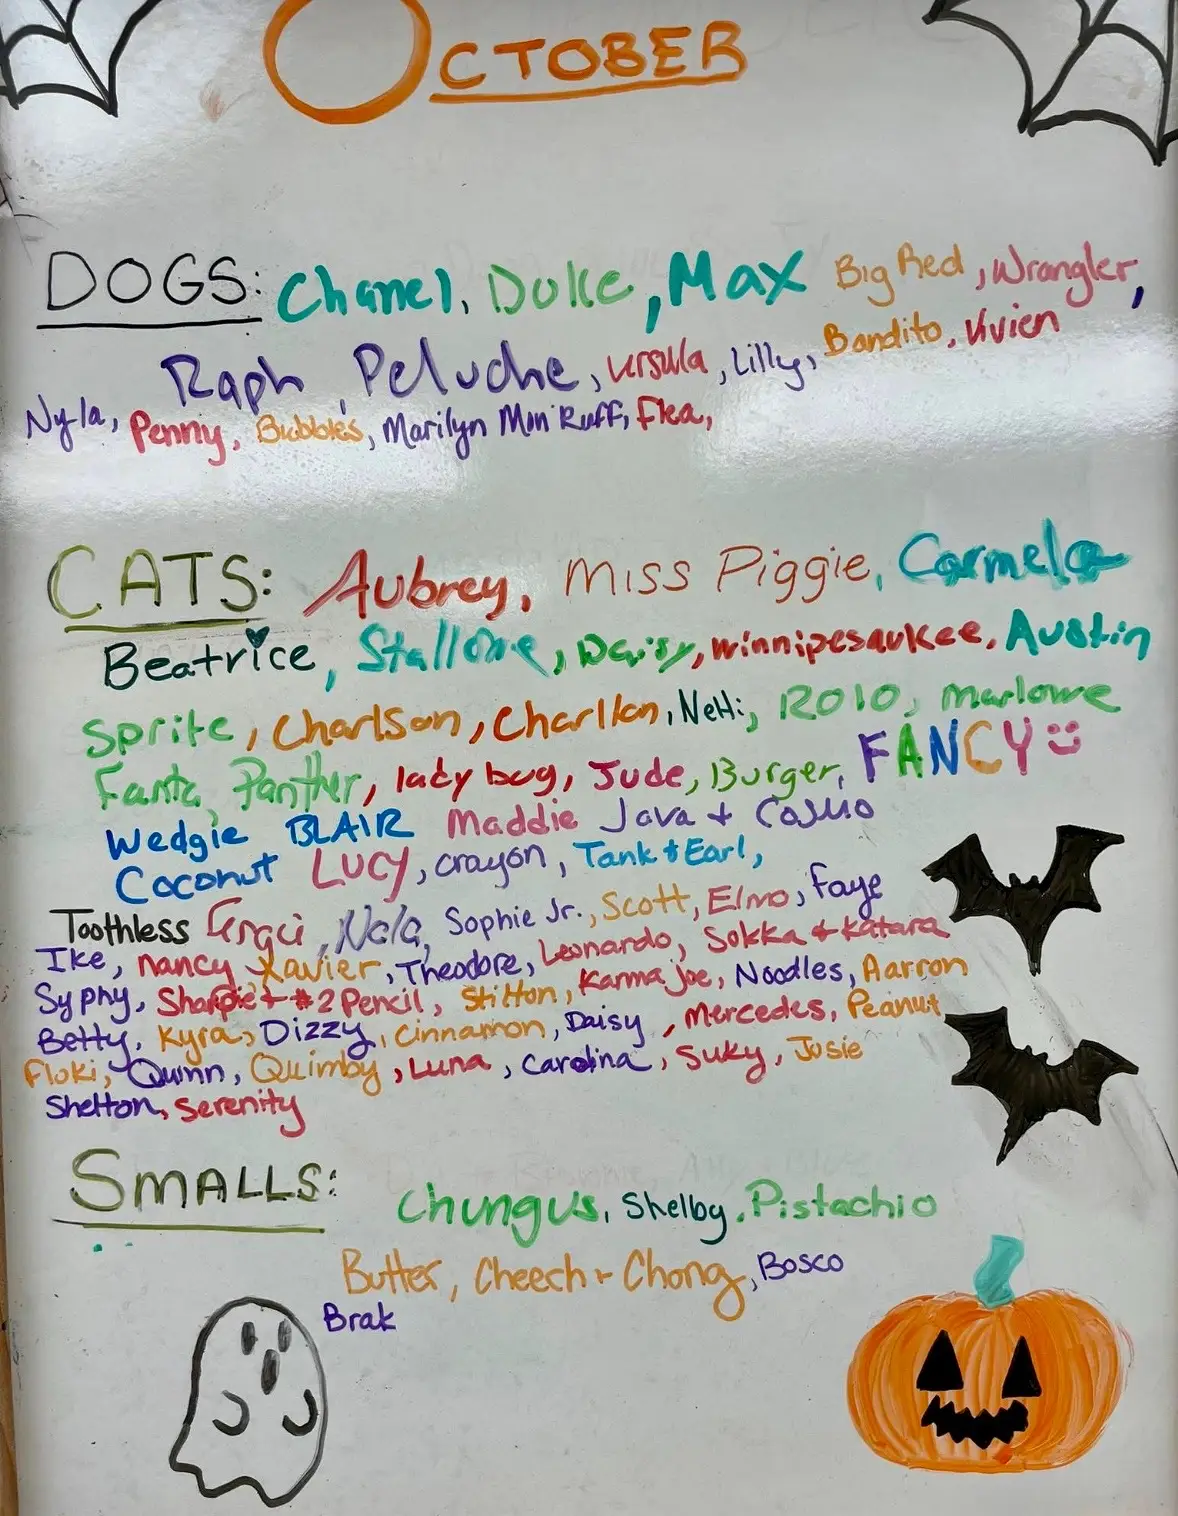 OCTOBER
DOGS: Chanel, Duke, Max Big Red, Wrangler,
Raph, Peluche, Ursula, Lilly, Bandito, Vivien
Nyla, Penny, Bubbles, Marilyn Mon Ruff, Flea,
CATS: Aubrey, Miss Piggie, Carmela
Beatrice, Stallone, Daisy, Winnipesaukee, Austin
Sprite, Charlson, Charlton, Nehi, Rolo, Marlowe
Fanta, Panther, lady bug, Jude, Burger, FANCY
Wedgie BLAIR Maddie Java + Cosmo
Coconut LUCY, crayon, Tank & Earl,
Toothless Nala, Sophie Jr., Scott, Elmo, Faye
Ike, Nancy Xavier, Theodore, Leonardo, Sokka & Katara
Syphy, Sharpie + #2 Pencil, Stilton, Karma Joe, Noodles, Aarron
Betty, Kyra, Dizzy, Cinnamon, Daisy, Mercedes, Peanut
Floki, Quinn, Quimby, Luna, Carolina, Suky, Josie
Shelton, Serenity
SMALLS:
Chungus, Shelby, Pistachio
Butter, Cheech + Chong, Bosco
Brak